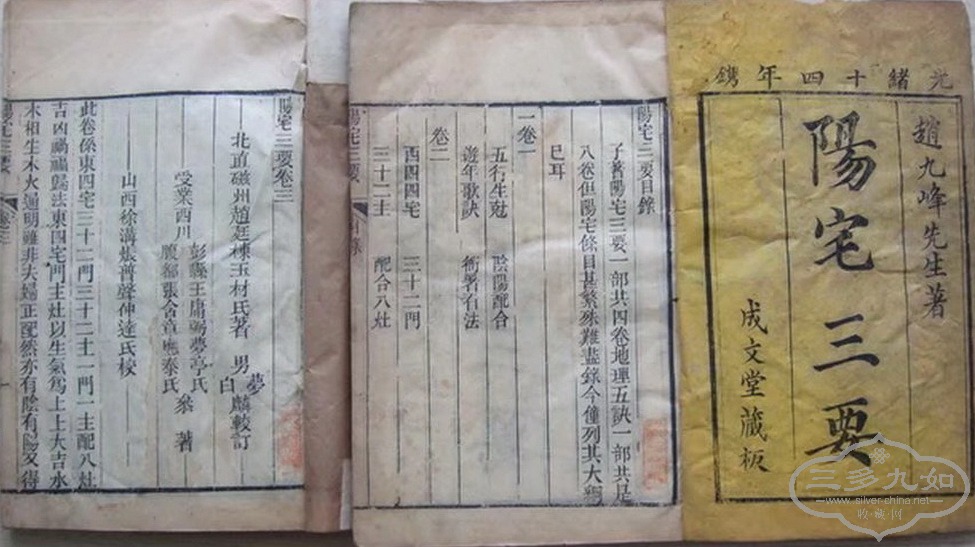 光緒十四年鐫
趙九峰先生著
陽宅三要
成文堂藏板
陽宅三要目錄
予著陽宅三要一部共四卷地理五訣一部共足
八卷但陽宅條目甚繁殊難盡錄今僅列其大槪
已耳
一卷
五行生尅 陰陽配合
遊年歌訣 衙署台法
卷二
西四四宅 三十二門
三十二主 配合八灶
陽宅三要
目錄
陽宅三要卷三
北直磁州趙廷棟玉材氏著 男夢白麟較訂
受業西川彭縣王庸弼夢亭氏
張含章應泰氏 叅著
山西徐溝張普聲伸達氏校
此卷係東四宅三十二門三十二主一門一主配八灶
吉凶禍福歸法東四宅門主灶以生氣爲上上大吉水
木相生木火通明雖非夫婦正配然亦有陰有陽又得
陽宅三要
卷三
三多九如
www.silver-china.com
收·藏·网